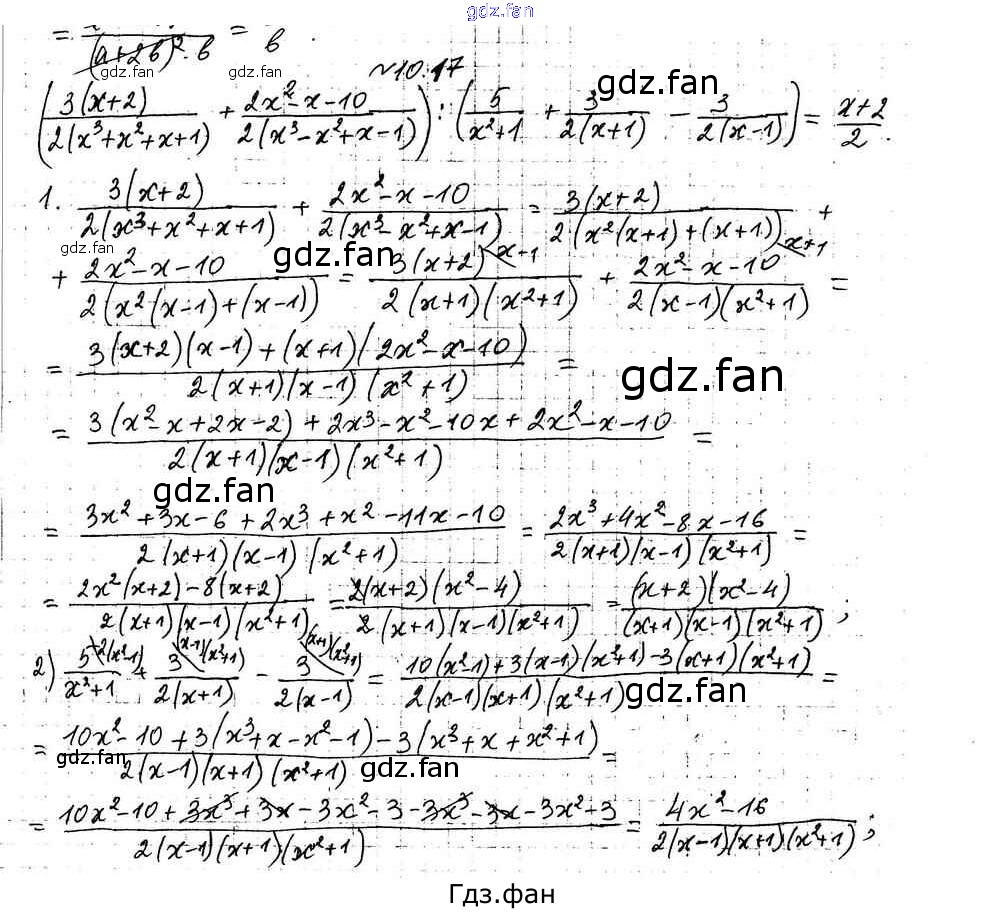 gdz.fan
= (a+2b)²·b = b .
gdz.fan gdz.fan
№10.17
gdz.fan
(3(x+2)/2(x³+x²+x+1) + 2x²-x-10/2(x³-x²+x-1)) : (5/x²+1 + 3/2(x+1) - 3/2(x-1)) = x+2/2.
1. 3(x+2)/2(x³+x²+x+1) + 2x²-x-10/2(x³-x²+x-1) = 3(x+2)/2(x²(x+1)+(x+1)) +
gdz.fan gdz.fan
+ 2x²-x-10/2(x²(x-1)+(x-1)) = 3(x+2) x-1/2(x+1)(x²+1) + 2x²-x-10 x+1/2(x-1)(x²+1) =
= 3(x+2)(x-1)+(x+1)(2x²-x-10)/2(x+1)(x-1)(x²+1) =
gdz.fan
= 3(x²-x+2x-2)+2x³-x²-10x+2x²-x-10/2(x+1)(x-1)(x²+1) =
gdz.fan
= 3x²+3x-6+2x³+x²-11x-10/2(x+1)(x-1)(x²+1) = 2x³+4x²-8x-16/2(x+1)(x-1)(x²+1) =
= 2x²(x+2)-8(x+2)/2(x+1)(x-1)(x²+1) = 2(x+2)(x²-4)/2(x+1)(x-1)(x²+1) = (x+2)(x²-4)/(x+1)(x-1)(x²+1) ;
2) 5 2(x²-1)/x²+1 + 3 (x-1)(x²+1)/2(x+1) - 3 (x+1)(x²+1)/2(x-1) = 10(x²-1)+3(x-1)(x²+1)-3(x+1)(x²+1)/2(x-1)(x+1)(x²+1) =
gdz.fan
= 10x²-10+3(x³+x-x²-1)-3(x³+x+x²+1)/2(x-1)(x+1)(x²+1) =
gdz.fan gdz.fan
= 10x²-10+3x³+3x-3x²-3-3x³-3x-3x²+3/2(x-1)(x+1)(x²+1) = 4x²-16/2(x-1)(x+1)(x²+1) ;
Гдз.фан